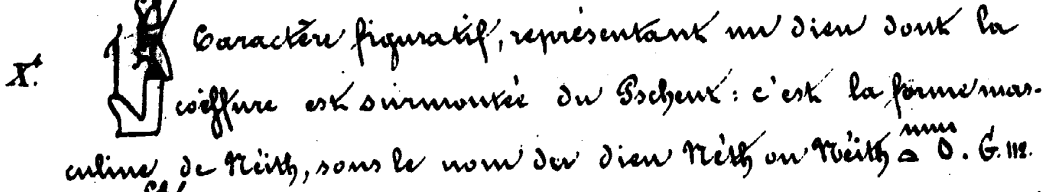 X.t Caractère figuratif, représentant un dieu dont la
coiffure est surmontée du Pschent : c'est la forme mas-
culine de Néith, sous le nom du dieu Néth ou Néith O. G. 112.